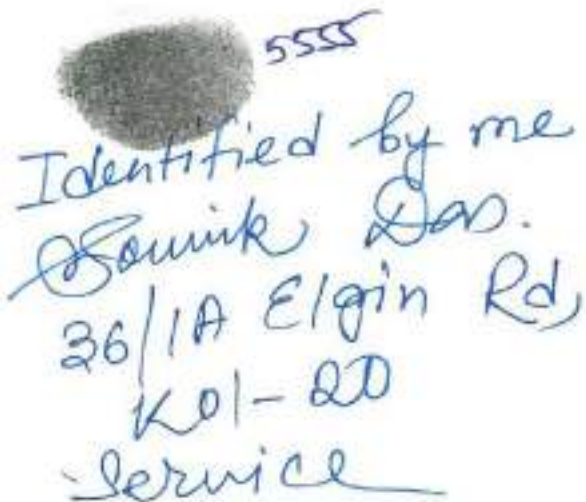 5555
Identified by me
Soumik Das.
36/1A Elgin Rd,
Kol-20
Service